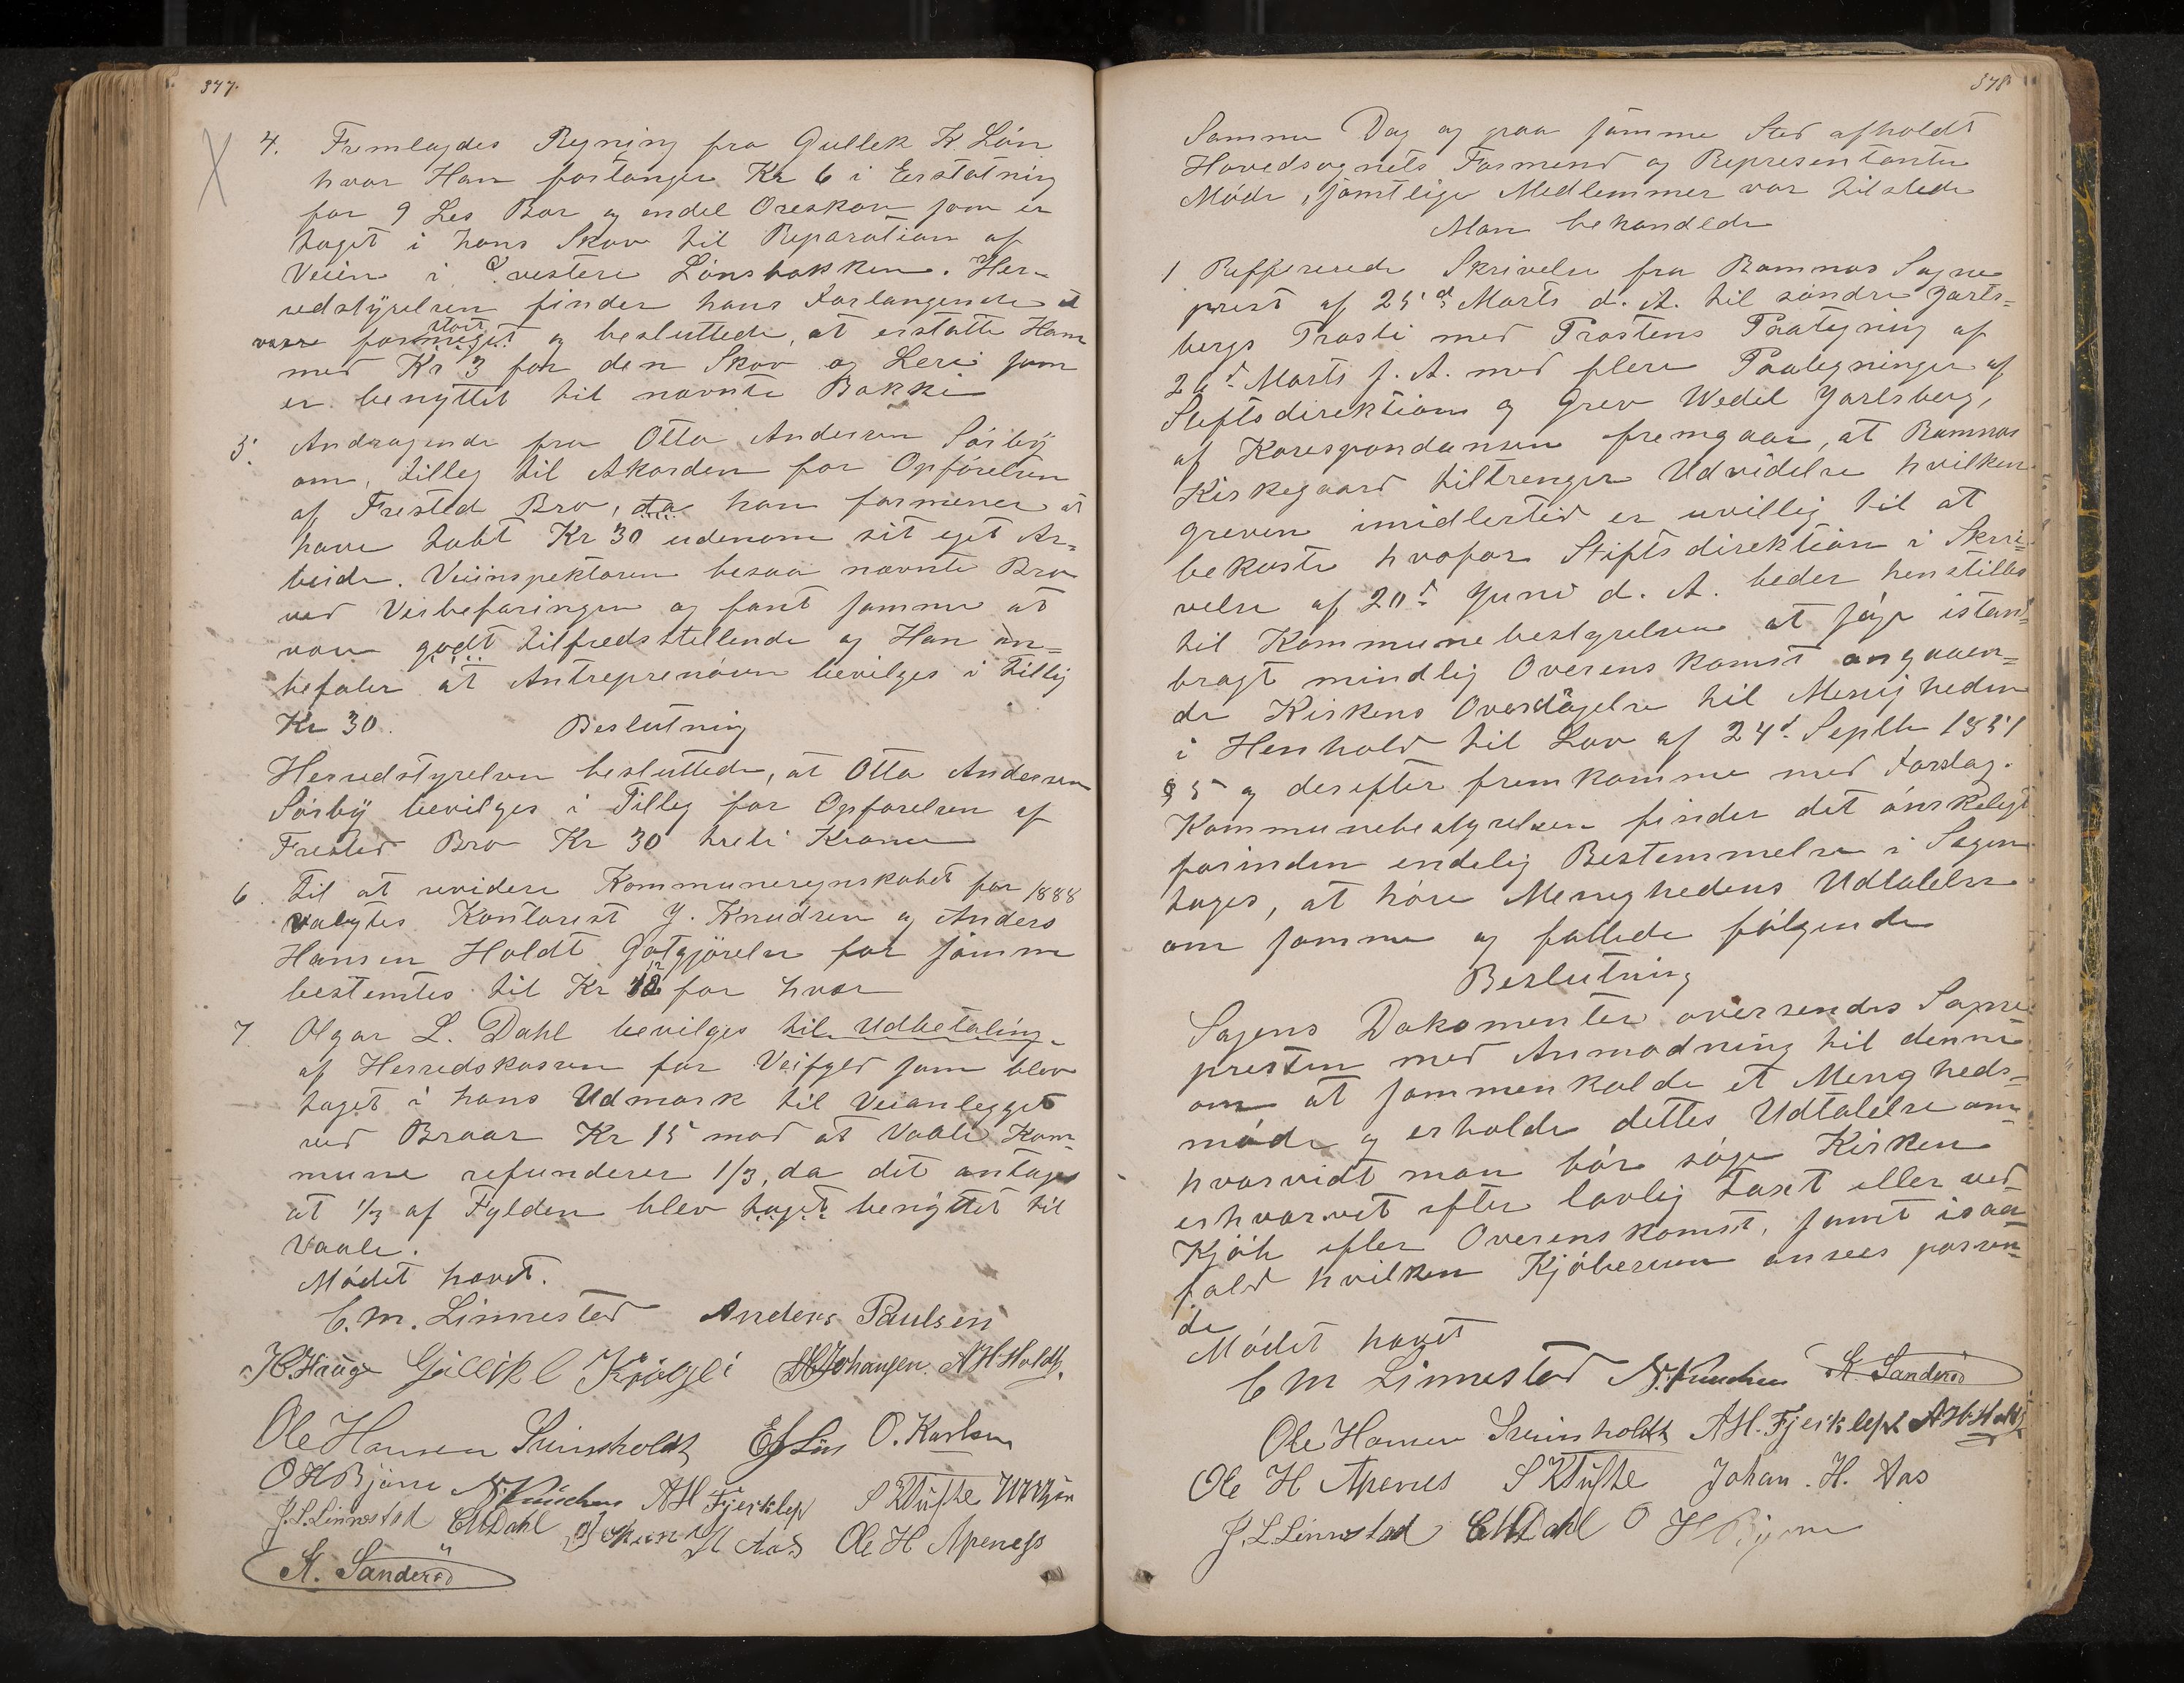 377.
4. Fremlagdes Regning fra Gullek K. Lön
hvor Han forlanger Kr 6 i Erstatning
for 9 Les Bar og endel Oreskov som er
taget i hans Skov til Reparation af
Veien i vestere Lönsbakken. Her-
redstyrelsen finder hans Forlangende at
være formeget stort og besluttede, at erstatte Ham
med Kr 3 for den Skov og Lere som
er benyttet til navnte Bakke
5. Andragende fra Otto Andersen Sörby
om, tilleg til Akorden for Opförelsen
af Frested Bro, da han formener at
have tabt Kr 30 udenom sit eget Ar-
beide. Veiinspektoren besaa navnte Bro
ved Veibefaringen og fant samme at
vare godt tilfredsstellende og Han an-
befaler at Antreprenören bevilges i Tilleg
Kr 30. Beslutning
Herredstyrelsen besluttede, at Otto Andersen
Sörby bevilges i Tilleg for Opforelsen af
Frested Bro Kr 30 treti Kroner
6. Til at revidere Kommuneregnskabet for 1888
valgtes Kontorist J. Knudsen og Anders
Hansen Holdt Gotgjörelse for samme
bestemtes til Kr 12 for hver
7. Olgar L. Dahl bevilges til Udbetaling
af Herredskassen for Veifyld som blev
taget i hans Udmark til Veianlegget
ved Braar Kr 15 mod at Vaale Kom-
mune refunderer 1/3, da det antages
at 1/3 af Fylden blev taget benyttet til
Vaale.
Mödet havet.
C. M. Linnestad Anders Paulsen
H. Hauge Gullik L Krögli Johansen. A H Holdt.
Ole Hansen Sveinsholdt O. Karlsen
O H Bjönne N. Knudsen A H Fjerkelep S K Tufte
J. L. Linnestad C M Dahl Johan H Aas Ole H Apeness
A. Sanderöd
378
Samme Dag og paa samme Sted afholdt
Hovedsognets Formend og Representanter
Möde, samtlige Medlemmer var tilstede
Man behandlede
1 Reffererede Skrivelse fra Ramnas Sogne
prest af 25d Marts d. A. til söndre Jarls-
bergs Prosti med Prostens Paategning af
26d Marts s. A. med flere Paategninger af
Stiftsdirektion og Grev Wedel Jarlsberg,
af Korespondansen fremgaar, at Ramnas
Kirkegaard tiltrenger Udvidelse hvilken
greven imidlertid er uvillig til at
bekoste hvofor Stiftsdirektion i Skri-
velse af 20d Juni d. A. beder henstilles
til Kommunebestyrelsen at söge istand-
bragt mindlig Overenskomst angaaen-
de Kirkens Overdragelse til Menigheden
i Henhold til Lov af 24d Septbr 1851
§ 5 og derefter fremkomme med Forslag.
Kommunebestyrelsen finder det önskeligt
forinden endelig Bestemmelse i Sagen
tages, at höre Menighedens Udtalelse
om samme og fattede fölgende
Beslutning
Sagens Dokomenter oversendes Sogne-
presten med Anmodning til denne
om at sammenkalde et Menigheds-
möde og erholde dettes Udtalelse om
hvorvidt man bör söge Kirken
erhvervet efter lovlig taxt eller ved
Kjöb efter Overenskomst, samt isaa-
fald hvilken Kjöbesum ansees passen-
de
Mödet havet
C M Linnestad N. Knudsen A. Sanderöd
Ole Hansen Sveinsholdt A H. Fjerkelep A H. Holdt
Ole H Apenes S K Tufte Johan. H. Aas
J. L. Linnestad C M Dahl O H Bjönne